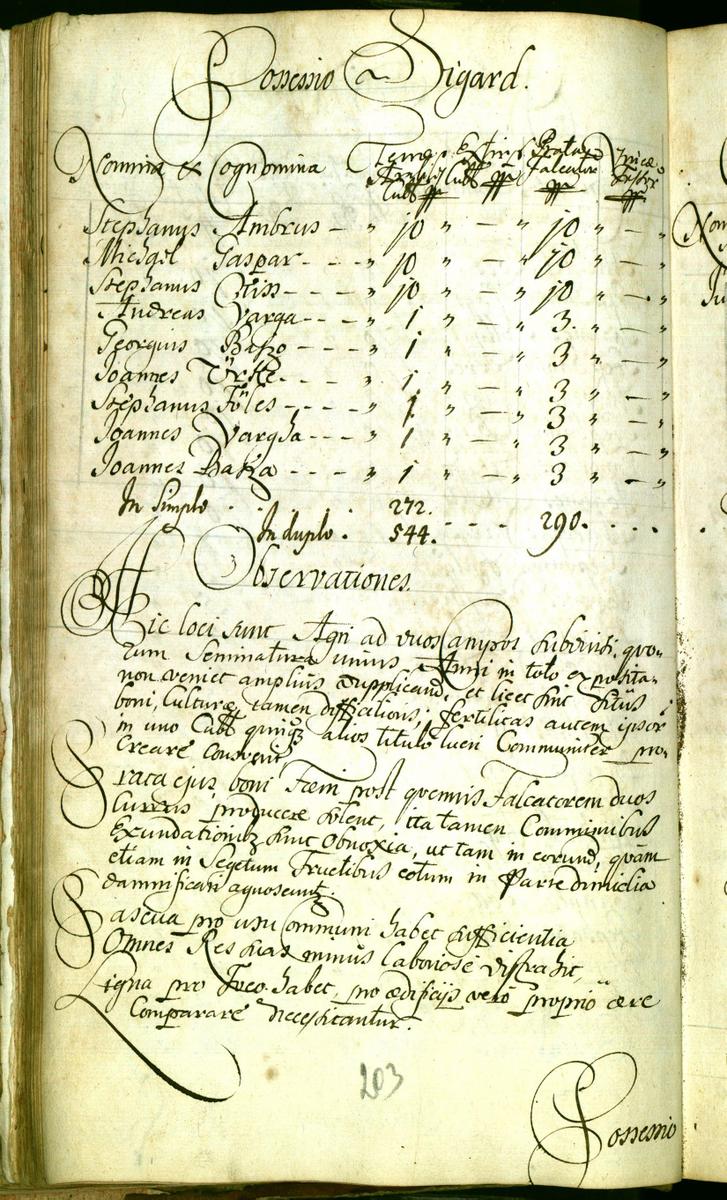 Possessio Sigard.
Nomina et Cognomina
Stephanus Ambrus - „ 10 „ - „ 10 „ - „
Michael Gaspar - - „ 10 „ - „ 10 „ - „
Stephanus Kiss - - - „ 10 „ - „ 10 „ - „
Andreas Varga - - - „ 1 „ - „ 3. „ - „
Georgius - - - „ 1 „ - „ 3 „ - „
Joannes - - - „ 1 „ - „ 3 „ - „
Stephanus Föles - - - - „ 1 „ - „ 3 „ - „
Joannes Vargha - - - „ 1 „ - „ 3 „ - „
Joannes - - - „ 1 „ - „ 3 „ - „
In Simplo . . 272.
In duplo . 544. - - - 290. . . .
Observationes.
Hic loci sunt Agri ad duos Campos subdivisi, quo-
rum Seminatura unius Anni in toto exposita
non veniet amplius dupplicand, et licet sint Situs
boni, Culturæ tamen difficilioris; fertilitas autem ipsor
in uno Cub quinq alios titulo lucri Communiter pro-
creare consvevit
Prata ejus boni Fæni post quemvis Falcatorem duos
Currus producere solent, ita tamen Communibus
Exundationib sunt Obnoxia, ut tam in eorund, quam
etiam in Segetum Fructibus eotum in Parte dimidia
damnificari agnoscunt.
Pascua pro usu Communi habet sufficientia
Omnes Res suas minus laboriose distrahit,
Ligna pro Foco habet, pro ædificijs vero proprio ære
Comparare necessitantur.
203
Possessio